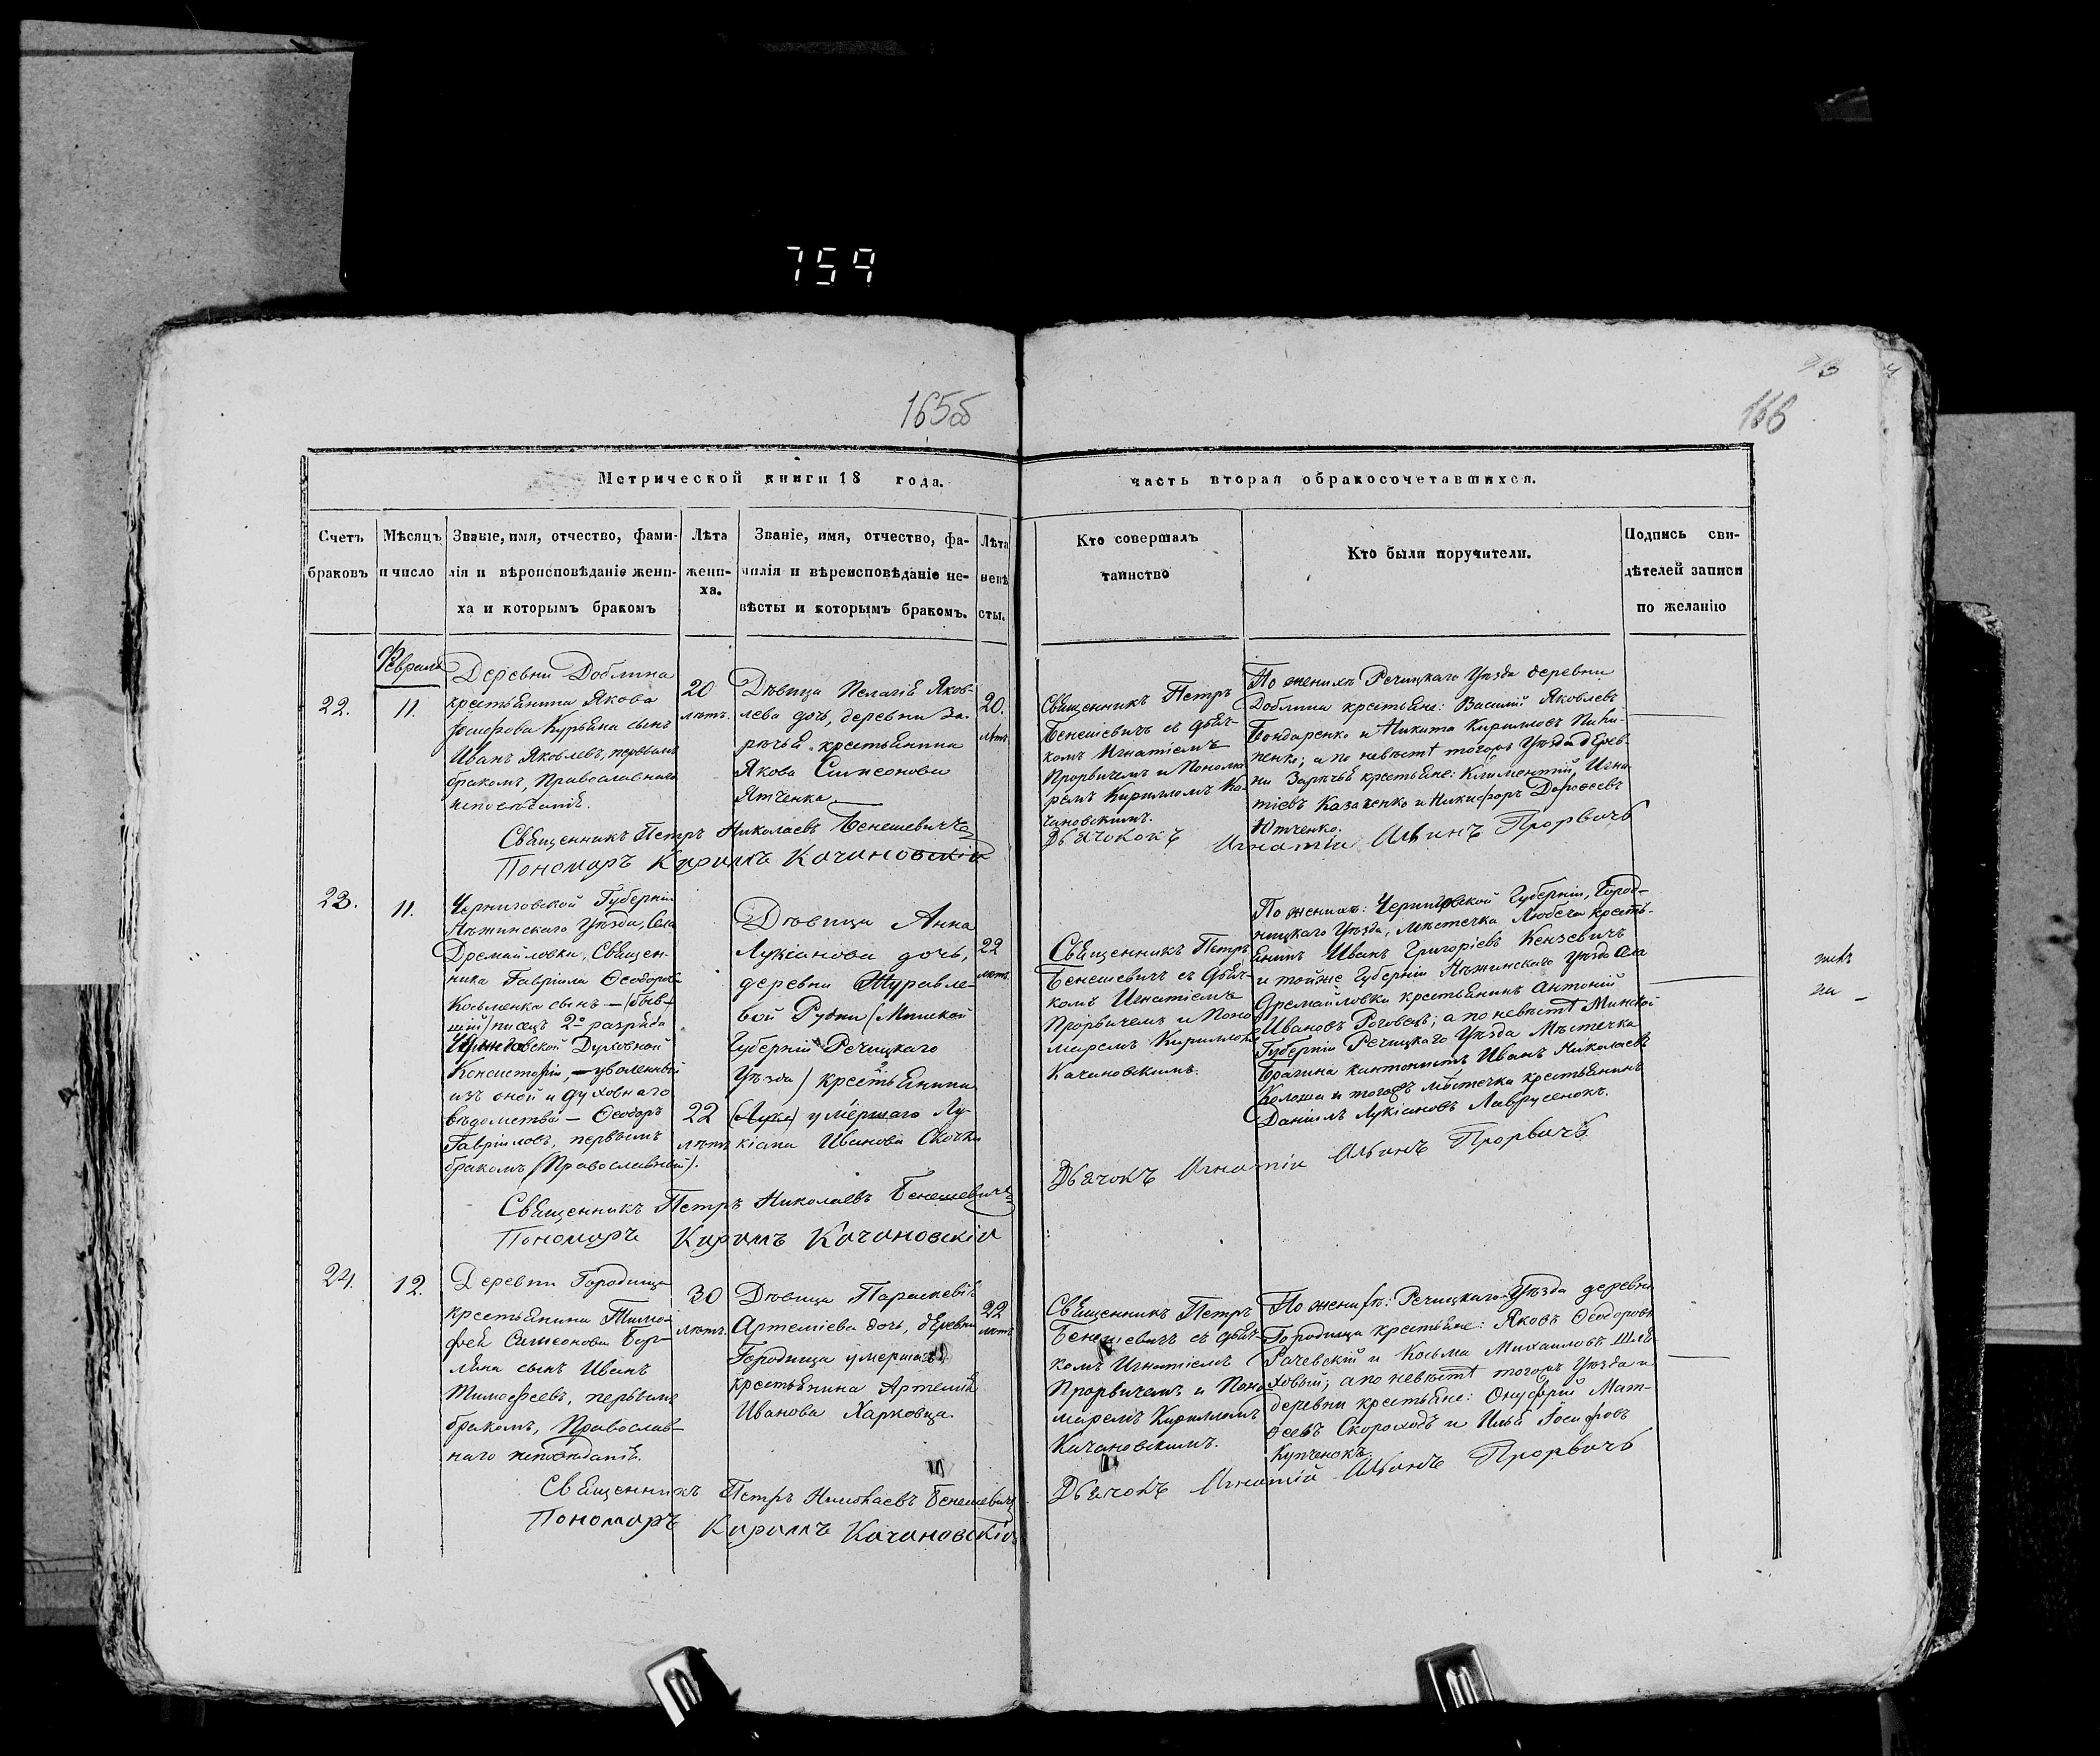 759
165об
166
93
Метрической книги 18 года.
часть вторая обракосочетавшихся.
Счетъ
браковъ
Мѣсяцъ
и число
Званіе, имя, отчество, фами-
лія и вѣроисповѣданіе жени-
ха и которымъ бракомъ
Лѣта
жени-
ха.
Званіе, имя, отчество, фа-
милія и вѣроисповѣданіе не-
вѣсты и которымъ бракомъ.
Лѣта
невѣ
сты.
Кто совершалъ
таинство
Кто были поручители.
Подпись сви-
дѣтелей записи
по желанію
Февраль
22.
11.
Деревни Доблина
крестьянина Якова
Курьяна сынъ
Иванъ Яковлевъ, первымъ
бракомъ, Православнаго
исповѣданія.
20
лѣтъ.
Дѣвица Пелагія Яков-
лева дочь, деревни За-
рѣчья крестьянина
Якова Симеонова
Ятченка
20.
лѣтъ
Священникъ Петръ
Бенешевичъ съ дьяч-
комъ Игнатіемъ
Прорвичемъ и Понома
ремъ Кирилломъ Ка-
чановскимъ.
По женихѣ Речицкаго Уѣзда деревни
Доблина крестьяне: Василій Яковлевъ
Бондаренко и Никита Кирилловъ
ненко; а по невѣстѣ тогожъ Уѣзда дерев-
ни Зарѣчья крестьяне: Климентій Игна
тіевъ Казаченко и Никифоръ Дорофеевъ
Ютченко.
Священникъ Петръ Николаевъ Бенешевичъ
Пономарь Кирилъ Качановскій
Дьячокъ Игнатій Ильинъ Прорвичъ
23.
11.
Черниговской Губерніи
Нѣжинскаго Уѣзда, Села
Дремайловки, Священ-
ника Гавріила Ѳеодоров
Косьменка сынъ — (быв-
шій) писецъ 2го разряда
Черниговской Духовной
Консисторіи, — уволенный
изъ оной и духовнаго
вѣдомства — Ѳеодоръ
Гавріиловъ, первымъ
бракомъ (Православный).
22
лѣтъ
Дѣвица Анна
Лукіанова дочь,
деревни Журавле-
вой Рудни (Минской
Губерніи Речицкаго
Уѣзда) крестьянина
(Луки) умершаго Лу-
кіана Иванова Скочка
22
лѣтъ
Священникъ Петръ
Бенешевичъ съ дьяч-
комъ Игнатіемъ
Прорвичемъ и Поно
маремъ Кирилломъ
Качановскимъ.
По женихѣ: Черниговской Губерніи, Город-
ницкаго Уѣзда, мѣстечка Любеча кресть-
янинъ Иванъ Григоріевъ Кензевичъ
и тойже Губерніи Нѣжинскаго Уѣзда Села
Дремайловки крестьянинъ Антоній
Ивановъ Роговецъ; а по невѣстѣ Минской
Губерніи Речицкаго Уѣзда Мѣстечка
Брагина кантонистъ Иванъ Николаевъ
Колоша и тогожъ мѣстечка крестьянинъ
Даніилъ Лукіановъ Лаврусенокъ.
Священникъ Петръ Николаевъ Бенешевичъ
Пономарь Кирилъ Качановскій
Дьячокъ Игнатій Ильинъ Прорвичъ
24.
12.
Деревни Городища
крестьянина Тимо-
фея Симеонова Бур-
лѣна сынъ Иванъ
Тимофеевъ, первымъ
бракомъ, Православ-
наго исповѣданія.
30
лѣтъ.
Дѣвица Параскевія
Артеміева дочь, деревни
Городища умершаго
крестьянина Артемія
Иванова Харковца.
22
лѣтъ
Священникъ Петръ
Бенешевичъ съ дьяч-
комъ Игнатіемъ
Прорвичемъ и Поно-
маремъ Кирилломъ
Качановскимъ.
По женихѣ: Речицкаго Уѣзда деревни
Городища крестьяне: Яковъ Ѳеодоровъ
Рачевскій и Косьма Михаиловъ Шля
ховый; а по невѣстѣ тогожъ Уѣзда и
деревни крестьяне: Онуфрій Мат-
ѳеевъ Скороходъ и Илья Іосифовъ
Купченокъ.
Священникъ Петръ Николаевъ Бенешевичъ
Пономарь Кирилъ Качановскій
Дьячокъ Игнатій Ильинъ Прорвичъ